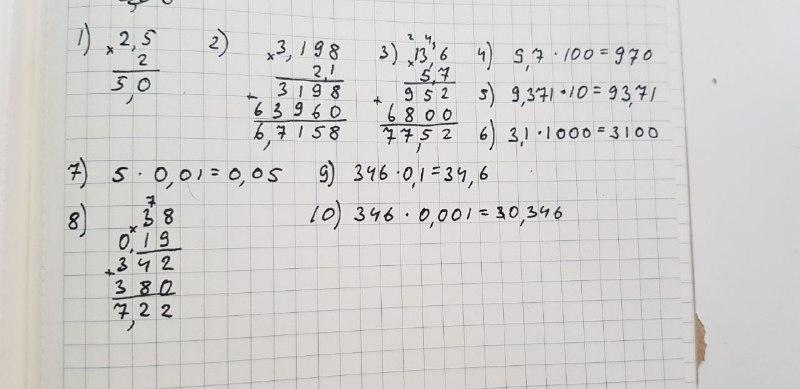 1) × 2,5
2
5,0
2) × 3,198
2,1
+ 3198
63960
6,7158
3) 2 4 3
× 13,6
5,7
+ 952
6800
77,52
4) 9,7 · 100 = 970
5) 9,371 · 10 = 93,71
6) 3,1 · 1000 = 3100
7) 5 · 0,01 = 0,05
8) 7
× 38
0,19
+ 342
380
7,22
9) 346 · 0,1 = 34,6
10) 346 · 0,001 = 0,346